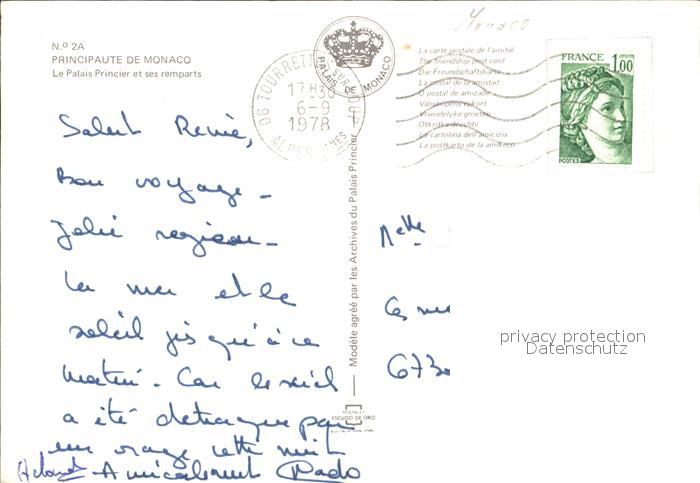 N.º 2A
PRINCIPAUTE DE MONACO
Le Palais Princier et ses remparts
PALAIS DE MONACO
Monaco
06 TOURRETTE SUR LOUP
17H30
6-9
1978
ALPES MMES
La carte postale de l'amitié
The friendship post card
Die Freundschaftskarte
La postal de la amistad
O postal de amizade
Vänskapens vykort
Vriendelyke groeten
Otkritka druzhbi
La cartolina dell'amicizia
La postkarto de la amikeco
FRANCE
1,00
POSTES
Modèle agréé par les Archives du Palais Princier
Salut
Bon voyage -
Jolie région -
La mer et le
soleil jusqu'à ce
matin. Car le soleil
a été détraqué par
un orage cette nuit
Amicalement
Melle
67
ESCUDO DE ORO
privacy protection
Datenschutz